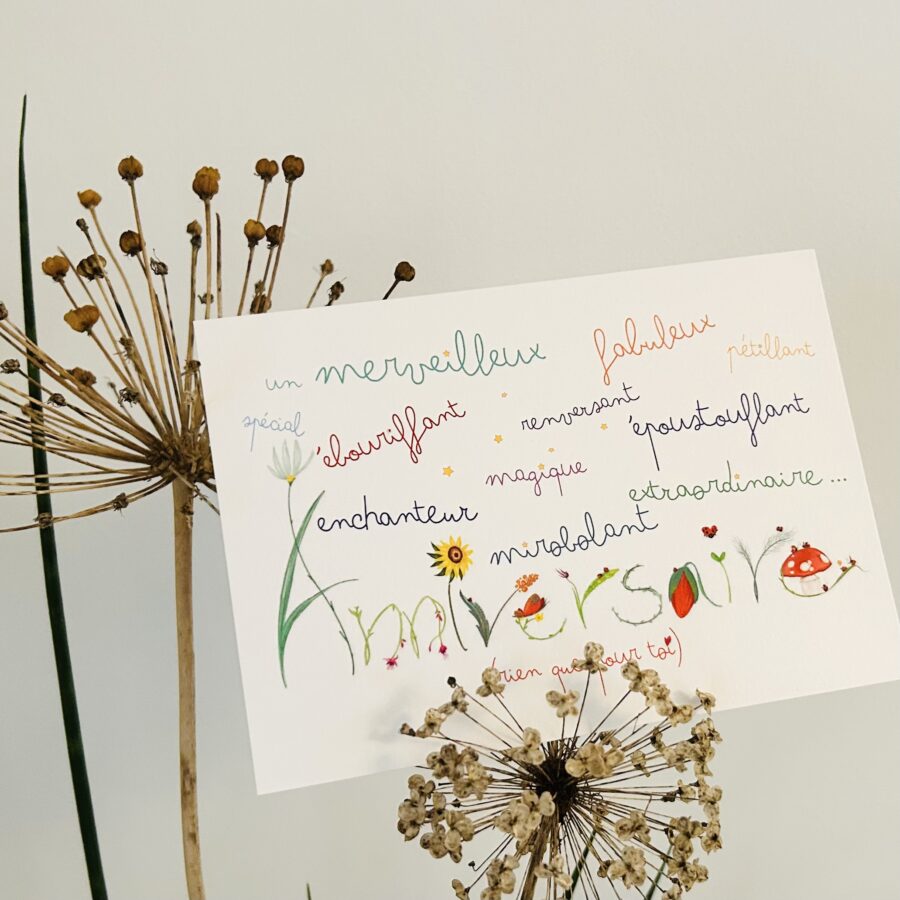 un merveilleux fabuleux pétillant
spécial ébouriffant renversant époustouflant
enchanteur magique extraordinaire ...
mirobolant
Anniversaire
(rien que pour toi)